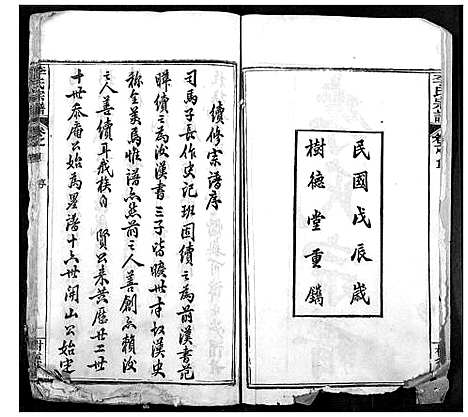 李氏宗譜
民國戊辰歲
樹德堂重鐫
續修宗譜序
司馬子長作史記班固續之為前漢書范
曄續之為後漢書三子皆曠世才故漢史
稱全美焉惟譜亦然前之人善創亦賴後
之人善續耳我族自 賢公來黃歷廿二世
十世泰庵公始為墨譜十六世開山公始定
李氏宗譜